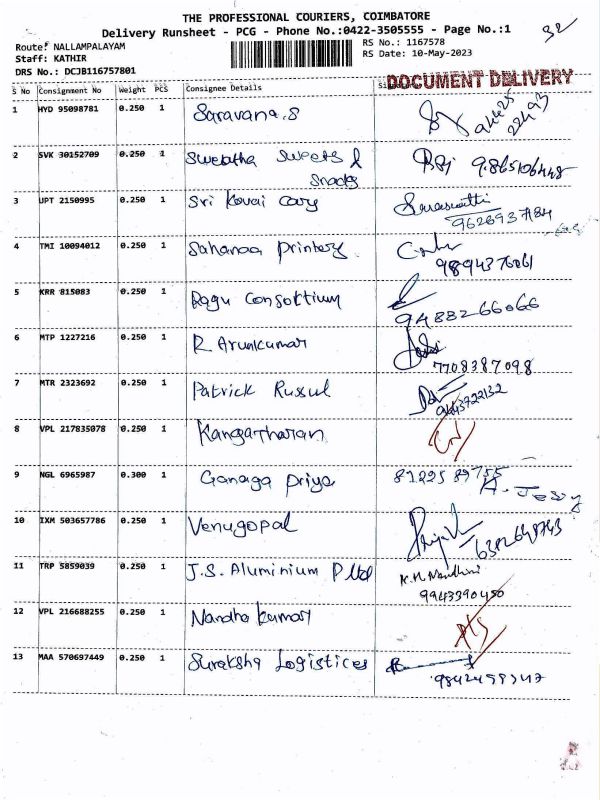 THE PROFESSIONAL COURIERS, COIMBATORE
Delivery Runsheet - PCG - Phone No.:0422-3505555 - Page No.:1
32
Route: NALLAMPALAYAM
RS No.: 1167578
Staff: KATHIR
RS Date: 10-May-2023
DRS No.: DCJB116757801
DOCUMENT DELIVERY
S No Consignment No Weight PCS Consignee Details
1 HYD 95098781 0.250 1 Saravana.S
2 SVK 30152709 0.250 1 Swetatha Sweets &
Snacks
3 UPT 2150995 0.250 1 Sri Kovai cary
9626937184
4 TMI 10094012 0.250 1 Sahanaa printerz
9894376061
5 KRR 815083 0.250 1 Ragu Consortium
9488266066
6 MTP 1227216 0.250 1 R Arunkumar
7708387098
7 MTR 2323692 0.250 1 Patrick Russul
8 VPL 217835078 0.250 1 Kangatharan
9 NGL 6965987 0.300 1 Ganaga priya
10 IXM 503657786 0.250 1 Venugopal
11 TRP 5859039 0.250 1 J.S. Aluminium P ltd K.M. Nandhini
9943390450
12 VPL 216688255 0.250 1 Nandha kumar
13 MAA 570697449 0.250 1 Suraksha Logistices